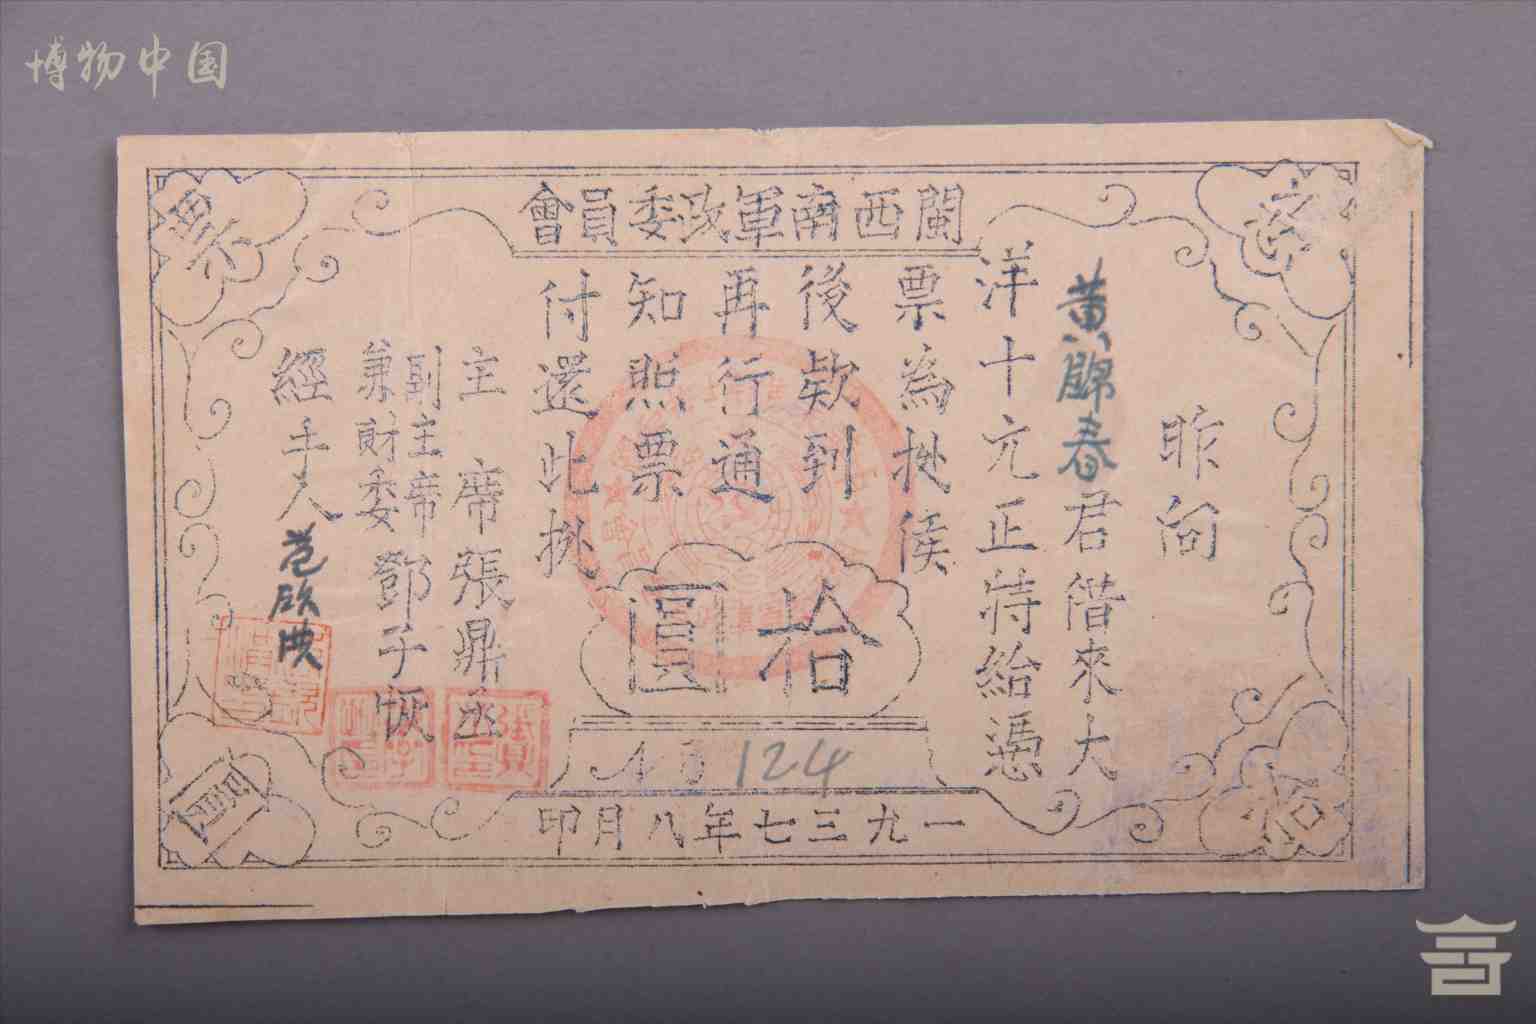 博物中国
閩西南軍政委員會
昨向
黃歸春君借來大
洋十元正特給憑
票為挄候
後欵到
再行通
知照票
付還此挄
拾圓
主席張鼎丞
副主席
兼財委鄧子恢
經手人范欣典
124
一九三七年八月印
票
拾
圓